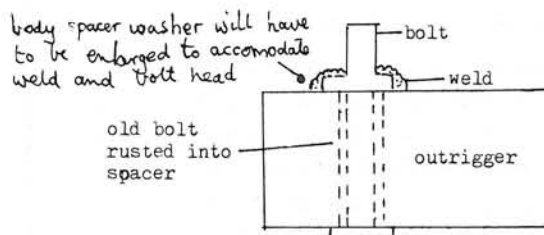 body spacer washer will have
to be enlarged to accomodate
weld and bolt head
bolt
weld
old bolt
rusted into
spacer
outrigger